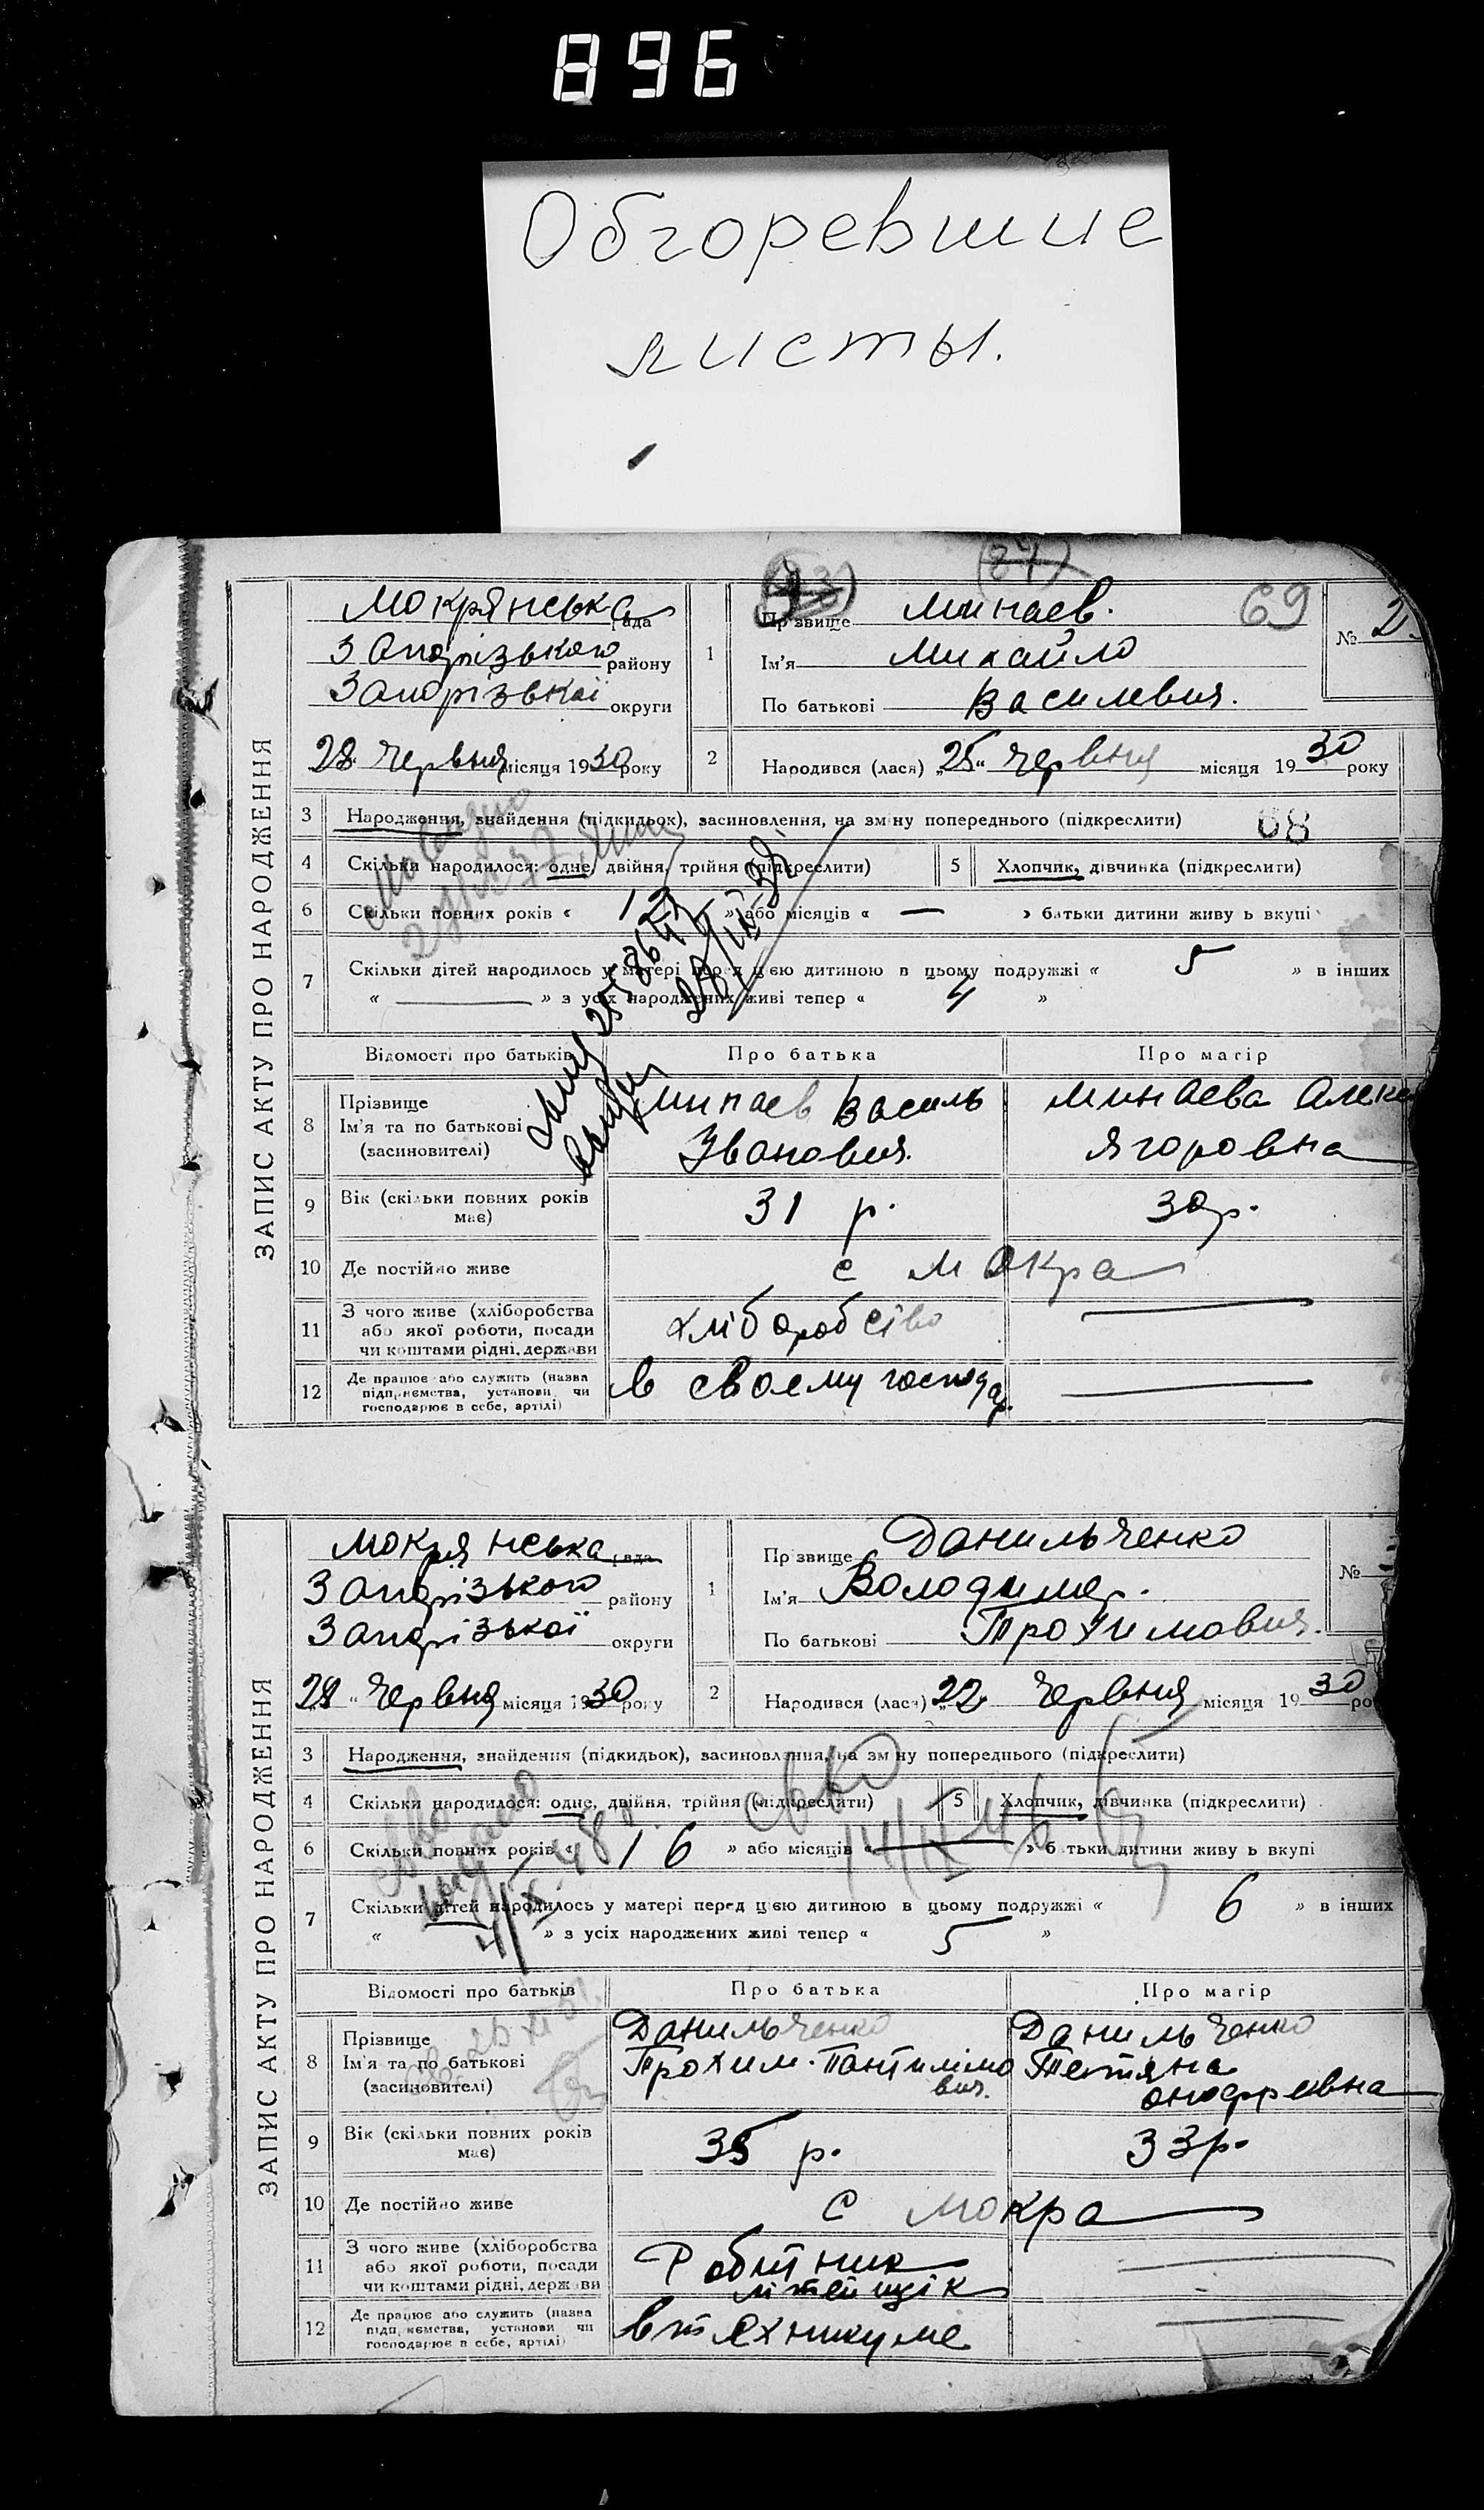 896
Обгоревшие
листы.
ЗАПИС АКТУ ПРО НАРОДЖЕННЯ
Мокрянська рада
Запорізького району
Запорізької округи
28 Червня місяця 1930 року
69
1 Прізвище Минаев.
Ім'я Михайло
По батькові Василевич.
№ 2
2 Народився (лася) „25" Червня місяця 1930 року
3 Народження, знайдення (підкидьок), засиновлення, на зміну попереднього (підкреслити)
68
4 Скільки народилося: одне, двійня, трійня (підкреслити)
5 Хлопчик, дівчинка (підкреслити)
6 Скільки повних років « 12 » або місяців « — » батьки дитини живуть вкупі
7 Скільки дітей народилось у матері перед цією дитиною в цьому подружжі « 5 » в інших
« — » з усіх народжених живі тепер « 4 »
Відомості про батьків Про батька Про матір
8 Прізвище
Ім'я та по батькові
(засиновителі)
Минаев Василь
Іванович.
Минаева Алекс
Ягоровна
9 Вік (скільки повних років
має)
31 р. 30 р.
10 Де постійно живе с Мокра
11 З чого живе (хліборобства
або якої роботи, посади
чи коштами рідні, держави
хліборобство —
12 Де працює або служить (назва
підприємства, установи чи
господарює в себе, артілі)
в своему господар. —
ЗАПИС АКТУ ПРО НАРОДЖЕННЯ
Мокрянська рада
Запорізького району
Запорізької округи
28 „ Червня місяця 1930 року
1 Прізвище Данильченко
Ім'я Володимер.
По батькові Трохимович.
№
2 Народився (лася) „22" Червня місяця 1930 ро
3 Народження, знайдення (підкидьок), засиновлення, на зміну попереднього (підкреслити)
4 Скільки народилося: одне, двійня, трійня (підкреслити)
5 Хлопчик, дівчинка (підкреслити)
6 Скільки повних років « 16 » або місяців « — » батьки дитини живуть вкупі
7 Скільки дітей народилось у матері перед цією дитиною в цьому подружжі « 6 » в інших
« — » з усіх народжених живі тепер « 5 »
Відомості про батьків Про батька Про матір
8 Прізвище
Ім'я та по батькові
(засиновителі)
Данильченко
Трохим Пантилімо
вич.
Данильченко
Тетяна
Онофреевна
9 Вік (скільки повних років
має)
35 р. 33 р.
10 Де постійно живе с Мокра
11 З чого живе (хліборобства
або якої роботи, посади
чи коштами рідні, держави
Робітник
літейщік
—
12 Де працює або служить (назва
підприємства, установи чи
господарює в себе, артілі)
в техникуме —